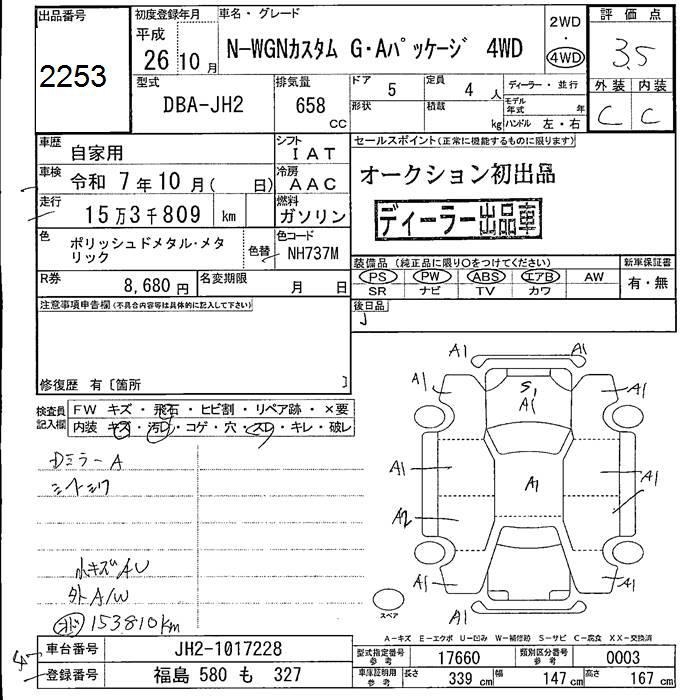 出品番号
2253
初度登録年月
平成
26年10月
車名・グレード
N-WGNカスタム G・Aパッケージ 4WD
2WD
・
4WD
評価点
3.5
外装 内装
C C
型式
DBA-JH2
排気量
658
CC
ドア 5
定員 4 人
形状
積載 kg
ディーラー・並行
モデル年式 年
ハンドル 左・右
車歴 自家用
シフト IAT
車検 令和 7年10月( 日)
冷房 AAC
走行 15万3千809 km
燃料 ガソリン
色 ポリッシュドメタル・メタリック
色替
色コード NH737M
R券 8,680円
名変期限 月 日
セールスポイント(正常に機能するものに限ります)
オークション初出品
ディーラー出品車
装備品(純正品に限り○をつけてください)
新車保証書
PS PW ABS エアB AW
SR ナビ TV カワ
有・無
後日品
注意事項申告欄(不具合内容等は具体的に記入して下さい)
修復歴 有〔箇所 〕
検査員記入欄
FW キズ・飛石・ヒビ割・リペア跡・×要
内装 キズ・汚レ・コゲ・穴・スレ・キレ・破レ
DミラーA
シートシワ
小キズAU
外A/W
153810km
A1 A1
A1 A1
S1
A1
A1 A1 A1
A2
A1 A1
A1
スペア
A-キズ E-エクボ U-凹み W-補修跡 S-サビ C-腐食 XX-交換済
車台番号 JH2-1017228
登録番号 福島 580 も 327
型式指定番号 参考 17660
類別区分番号 参考 0003
車庫証明用 参考 長さ 339 cm 幅 147 cm 高さ 167 cm